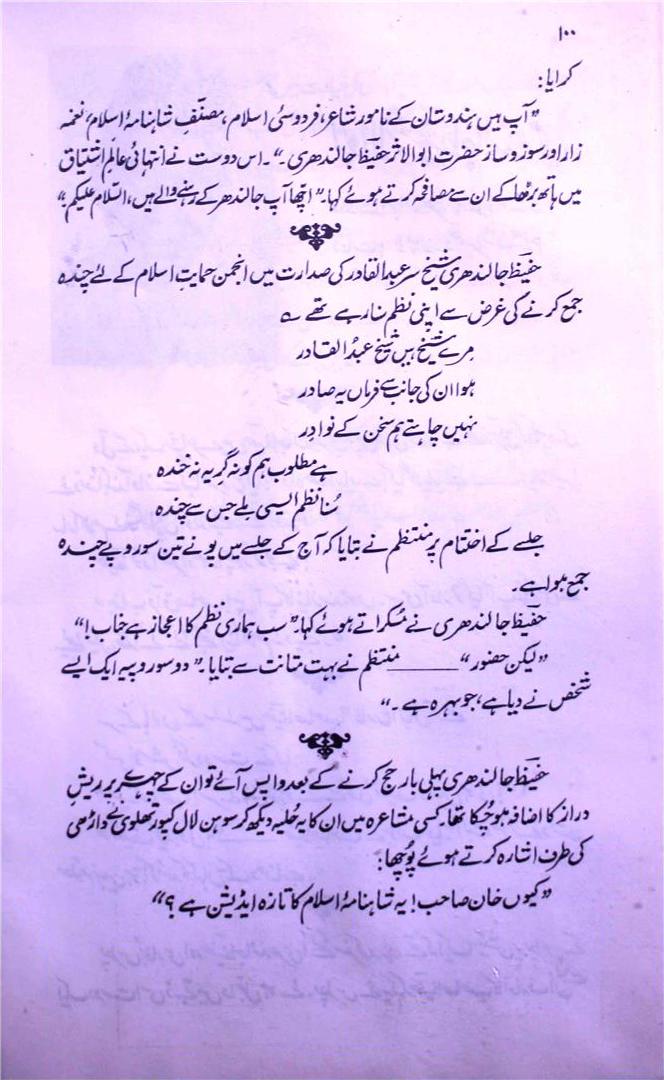 ۱۰۰
کرایا:
"آپ ہیں ہندوستان کے نامور شاعر، فردوسیٔ اسلام، مصنّفِ شاہنامۂ اسلام، نغمہ
زار اور سوز و ساز حضرت ابوالاثر حفیظ جالندھری۔" اس دوست نے انتہائی عالمِ اشتیاق
میں ہاتھ بڑھا کے ان سے مصافحہ کرتے ہوئے کہا۔" اچھا آپ جالندھر کے رہنے والے ہیں، السّلام علیکم!"
حفیظ جالندھری شیخ سر عبدالقادر کی صدارت میں انجمن حمایتِ اسلام کے لئے چندہ
جمع کرنے کی غرض سے اپنی نظم سنا رہے تھے ؎
مرے شیخ ہیں شیخ عبدُ القادر
ہوا ان کی جانب سے فرماں یہ صادر
نہیں چاہتے ہم سخن کے نوادِر
ہے مطلوب ہم کو نہ گریہ نہ خندہ
سُنا نظم ایسی ملے جس سے چندہ
جلسے کے اختتام پر منتظم نے بتایا کہ آج کے جلسے میں پونے تین سو روپے چندہ
جمع ہوا ہے۔
حفیظ جالندھری نے مُسکراتے ہوئے کہا۔" سب ہماری نظم کا اعجاز ہے جناب!"
"لیکن حضور" ــــــــ منتظم نے بہت متانت سے بتایا۔" دو سو روپیہ ایک ایسے
شخص نے دیا ہے، جو بہرہ ہے۔"
حفیظ جالندھری پہلی بار حج کرنے کے بعد واپس آئے تو ان کے چہرے پر ریشِ
دراز کا اضافہ ہو چُکا تھا۔ کسی مشاعرہ میں ان کا یہ حُلیہ دیکھ کر سوہن لال کپور تھلوی نے داڑھی
کی طرف اشارہ کرتے ہوئے پُوچھا:
"کیوں خان صاحب! یہ شاہنامۂ اسلام کا تازہ ایڈیشن ہے؟"